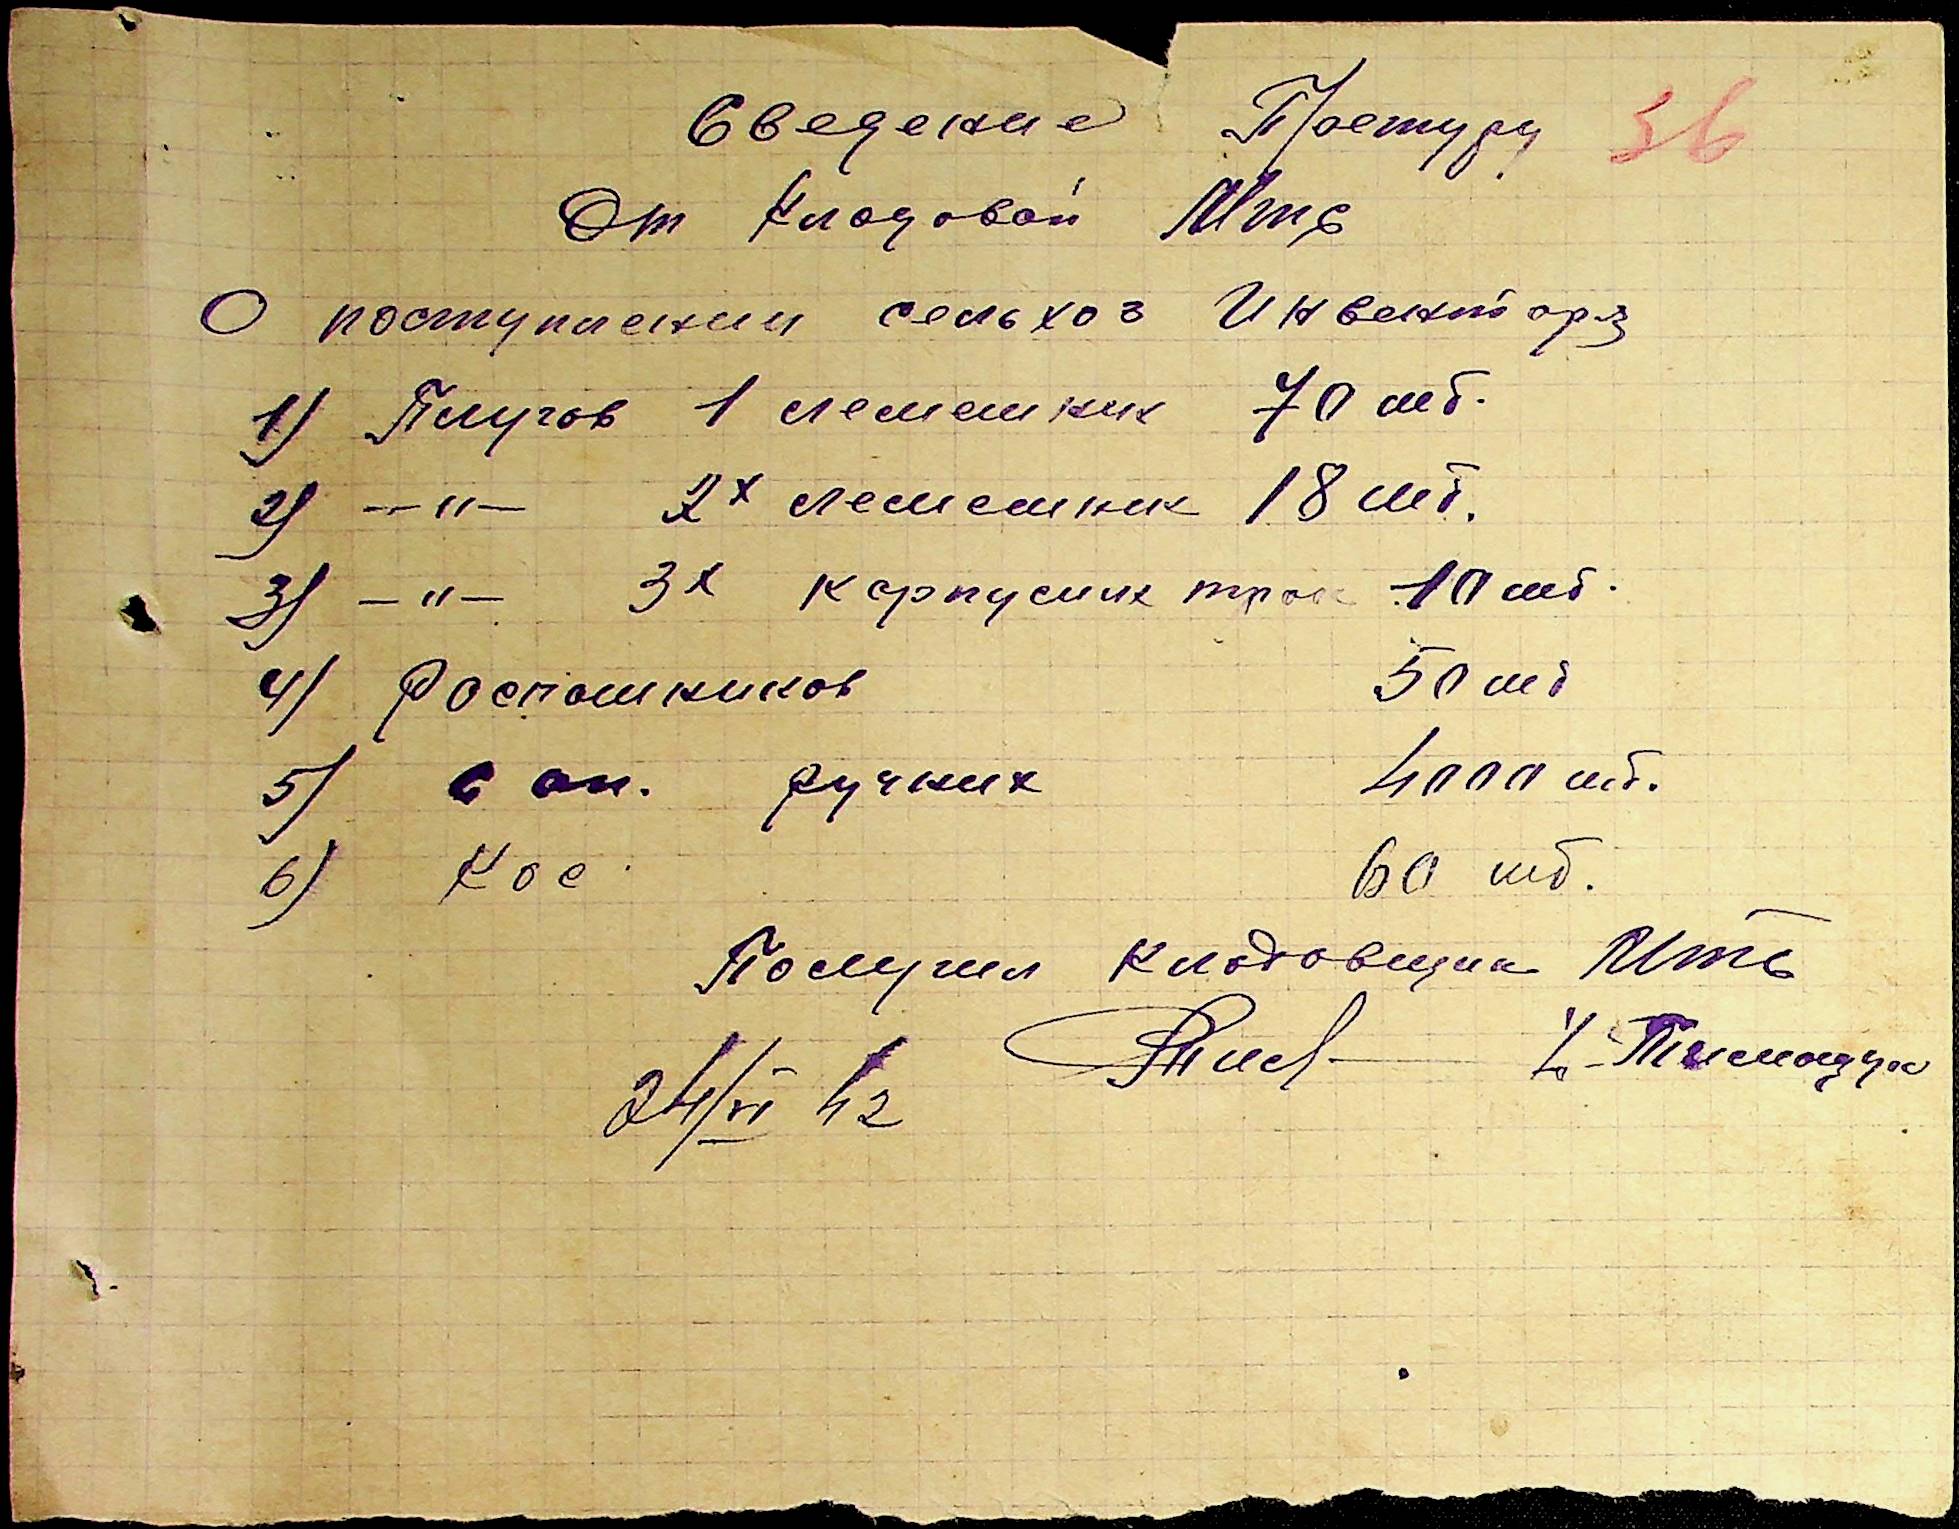 Сведение 36
От Кладовой Мтс
О поступлении сельхоз Инвентаря
1) Плугов 1 лемешних 70 шт.
2) —"— 2х лемешних 18 шт.
3) —"— 3х корпусных трак 10 шт.
4) Роспашников 50 шт
5) сап. ручних 4000 шт.
6) Кос 60 шт.
Получил кладовщик Мтс
24/VI 42